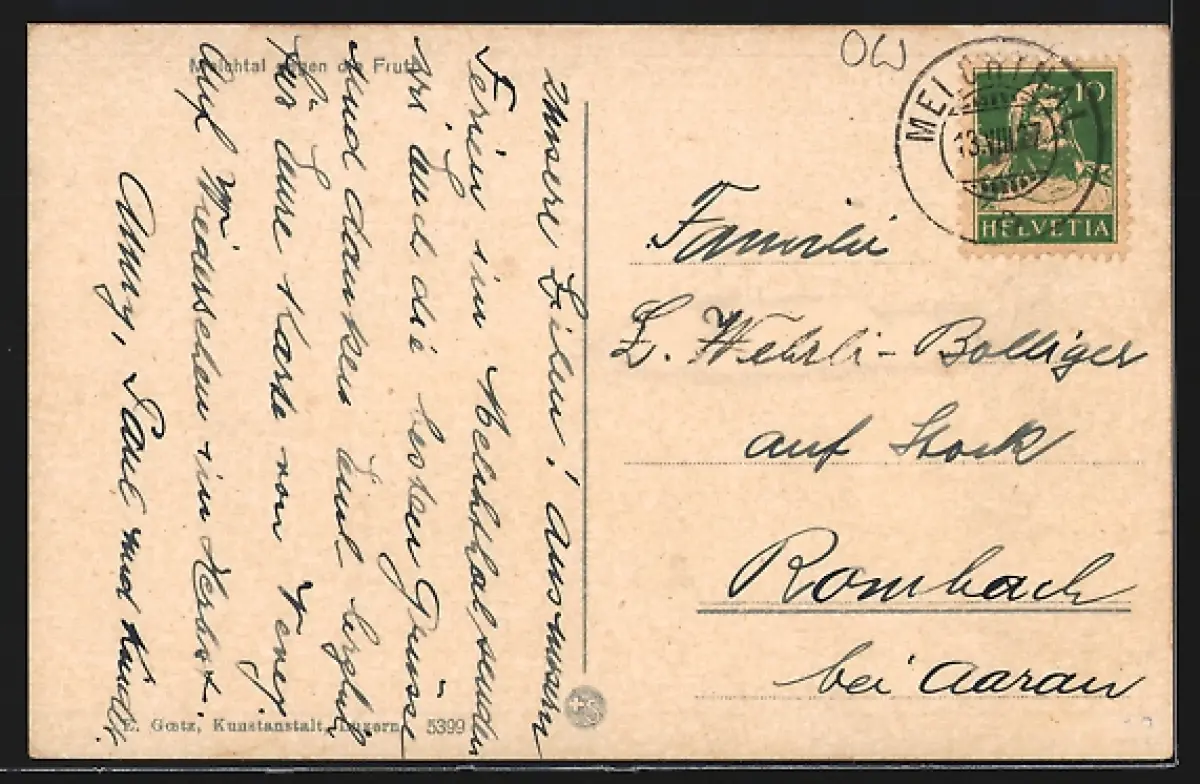 Melchtal gegen die Frutt
Unsere Lieben! Aus unsern
Ferien im Melchthal senden
wir Euch die besten Grüsse
und danken Euch herzlich
für Eure Karte von
Auf Wiedersehen im Herbst.
Anny, Paul und Kindli.
E. Gœtz, Kunstanstalt, Luzern 5399
OW
MELCHTHAL
13.VIII.27
10
HELVETIA
Familie
Z. Wehrli-Bolliger
auf Stock
Rombach
bei Aarau